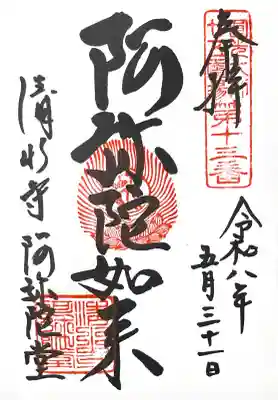 奉拝
第十三番
令和八年
五月三十一日
阿弥陀如来
清水寺 阿弥陀堂